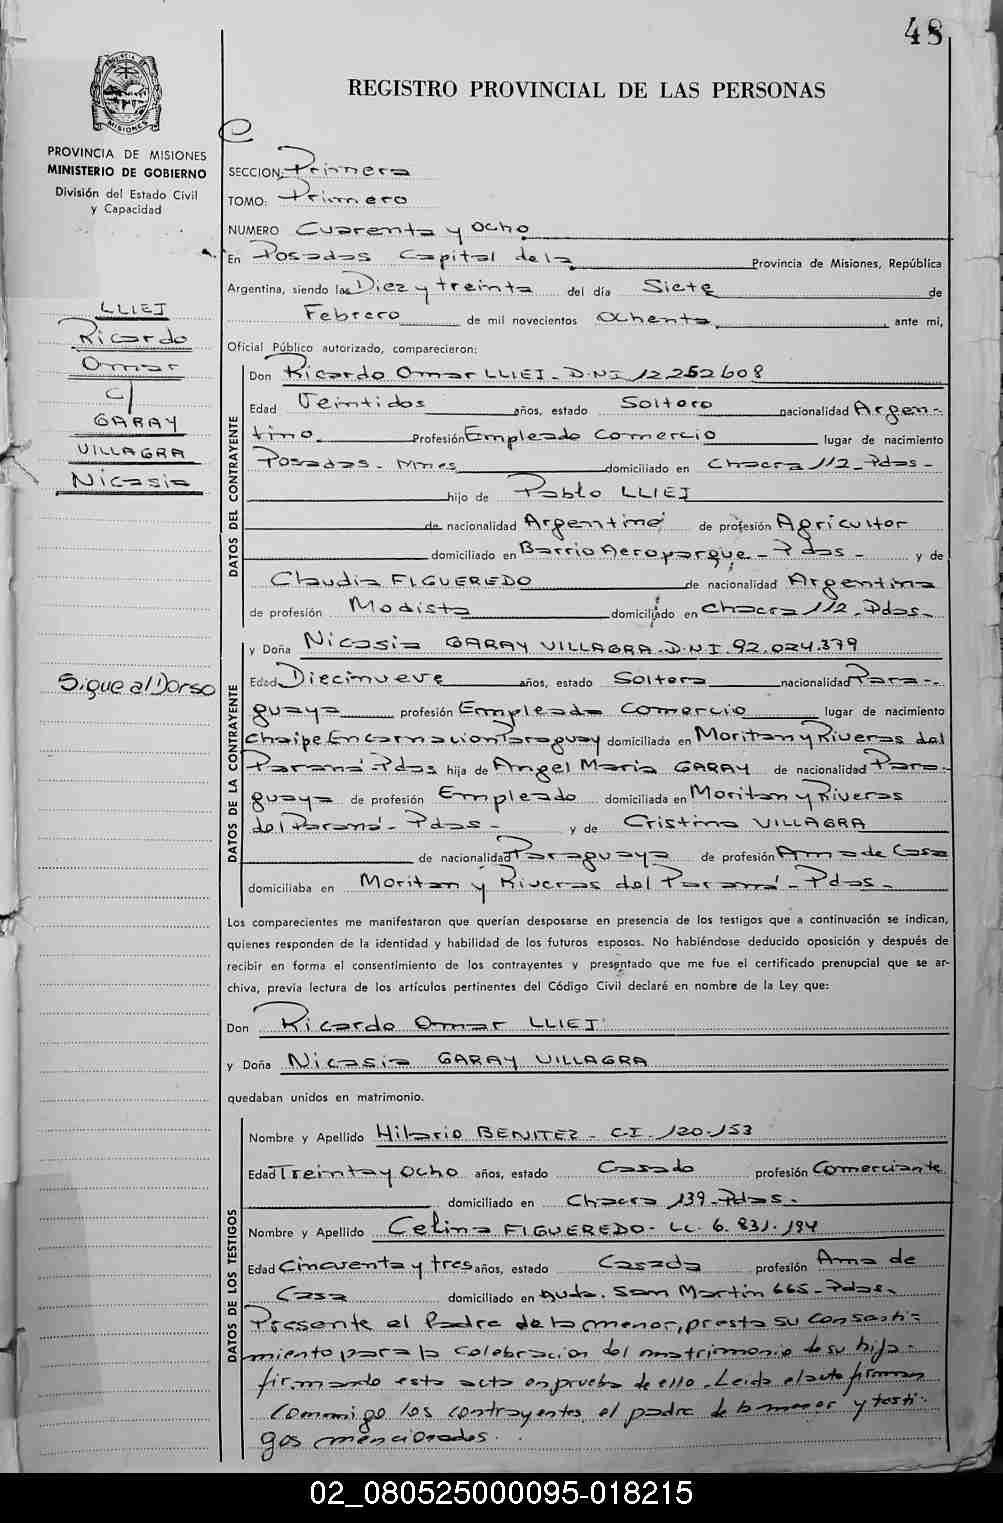 48
PROVINCIA DE
MISIONES
PROVINCIA DE MISIONES
MINISTERIO DE GOBIERNO
División del Estado Civil
y Capacidad
LLIEJ
Ricardo
Omar
c/
GARAY
VILLAGRA
Nicasia
Sigue al Dorso
REGISTRO PROVINCIAL DE LAS PERSONAS
SECCION: Primera
TOMO: Primero
NUMERO Cuarenta y Ocho
En Posadas Capital de la Provincia de Misiones, República
Argentina, siendo las Diez y treinta del día Siete de
Febrero de mil novecientos Ochenta, ante mí,
Oficial Público autorizado, comparecieron:
DATOS DEL CONTRAYENTE
Don Ricardo Omar LLIEJ - D.N.I 12.252608
Edad Veintidos años, estado Soltero nacionalidad Argen-
tino. Profesión Empleado Comercio lugar de nacimiento
Posadas - Mnes domiciliado en Chacra 112 - Pdas -
hijo de Pablo LLIEJ
de nacionalidad Argentino de profesión Agricultor
domiciliado en Barrio Aeroparque - Pdas - y de
Claudia FIGUEREDO de nacionalidad Argentina
de profesión Modista domiciliado en Chacra 112 - Pdas -
DATOS DE LA CONTRAYENTE
y Doña Nicasia GARAY VILLAGRA - D.N.I. 92.024.379
Edad Diecinueve años, estado Soltera nacionalidad Para-
guaya profesión Empleada Comercio lugar de nacimiento
Chaipe Encarnacion Paraguay domiciliada en Moritan y Riveras del
Paraná - Pdas hija de Angel Maria GARAY de nacionalidad Para-
guaya de profesión Empleado domiciliada en Moritan y Riveras
del Paraná - Pdas - y de Cristina VILLAGRA
de nacionalidad Paraguaya de profesión Ama de Casa
domiciliaba en Moritan y Riveras del Paraná - Pdas -
Los comparecientes me manifestaron que querían desposarse en presencia de los testigos que a continuación se indican,
quienes responden de la identidad y habilidad de los futuros esposos. No habiéndose deducido oposición y después de
recibir en forma el consentimiento de los contrayentes y presentado que me fue el certificado prenupcial que se ar-
chiva, previa lectura de los artículos pertinentes del Código Civil declaré en nombre de la Ley que:
Don Ricardo Omar LLIEJ
y Doña Nicasia GARAY VILLAGRA
quedaban unidos en matrimonio.
DATOS DE LOS TESTIGOS
Nombre y Apellido Hilario BENITEZ - C.I. 120.153
Edad Treinta y Ocho años, estado Casado profesión Comerciante
domiciliado en Chacra 139 - Pdas -
Nombre y Apellido Celina FIGUEREDO - LC. 6.831.194
Edad Cincuenta y tres años, estado Casada profesión Ama de
Casa domiciliado en Avda. San Martin 665 - Pdas -
Presente el Padre de la menor, presta su consenti-
miento para la celebracion del matrimonio de su hija
firmando esta acta en prueba de ello. Leida el acta firman
conmigo los contrayentes, el padre de la menor y testi-
gos mencionados.
02_080525000095-018215